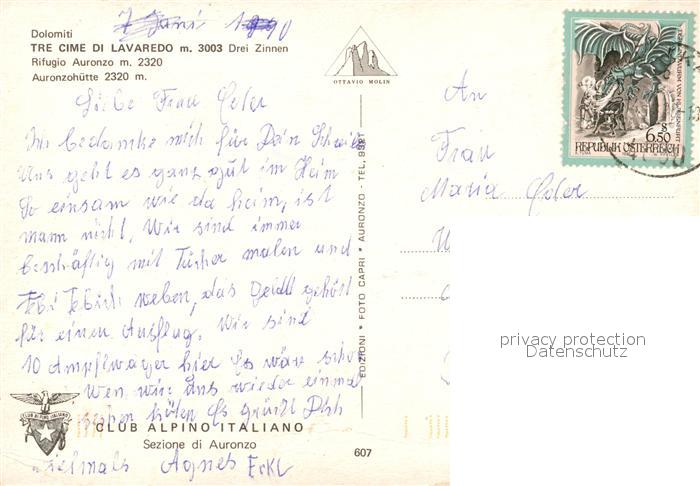 Dolomiti
TRE CIME DI LAVAREDO m. 3003 Drei Zinnen
Rifugio Auronzo m. 2320
Auronzohütte 2320 m.
7 Juni 1990
OTTAVIO MOLIN
Liebe Frau
Ich bedanke mich für Dein
Uns geht es ganz gut im Heim
So einsam wie da heim, ist
mann nicht, Wir sind immer
beschäftig mit Tücher malen und
weben, das Geldt gehört
für einen Ausflug. Wir sind
10 hier Es wäre
Wen wir uns wieder einmal
Es grüßt Dich
vielmals Agnes Eckl
CLUB ALPINO ITALIANO
CLUB ALPINO ITALIANO
Sezione di Auronzo
607
EDIZIONI • FOTO CAPRI • AURONZO - TEL. 9921
An
Frau
Maria
6.50
REPUBLIK ÖSTERREICH
privacy protection
Datenschutz